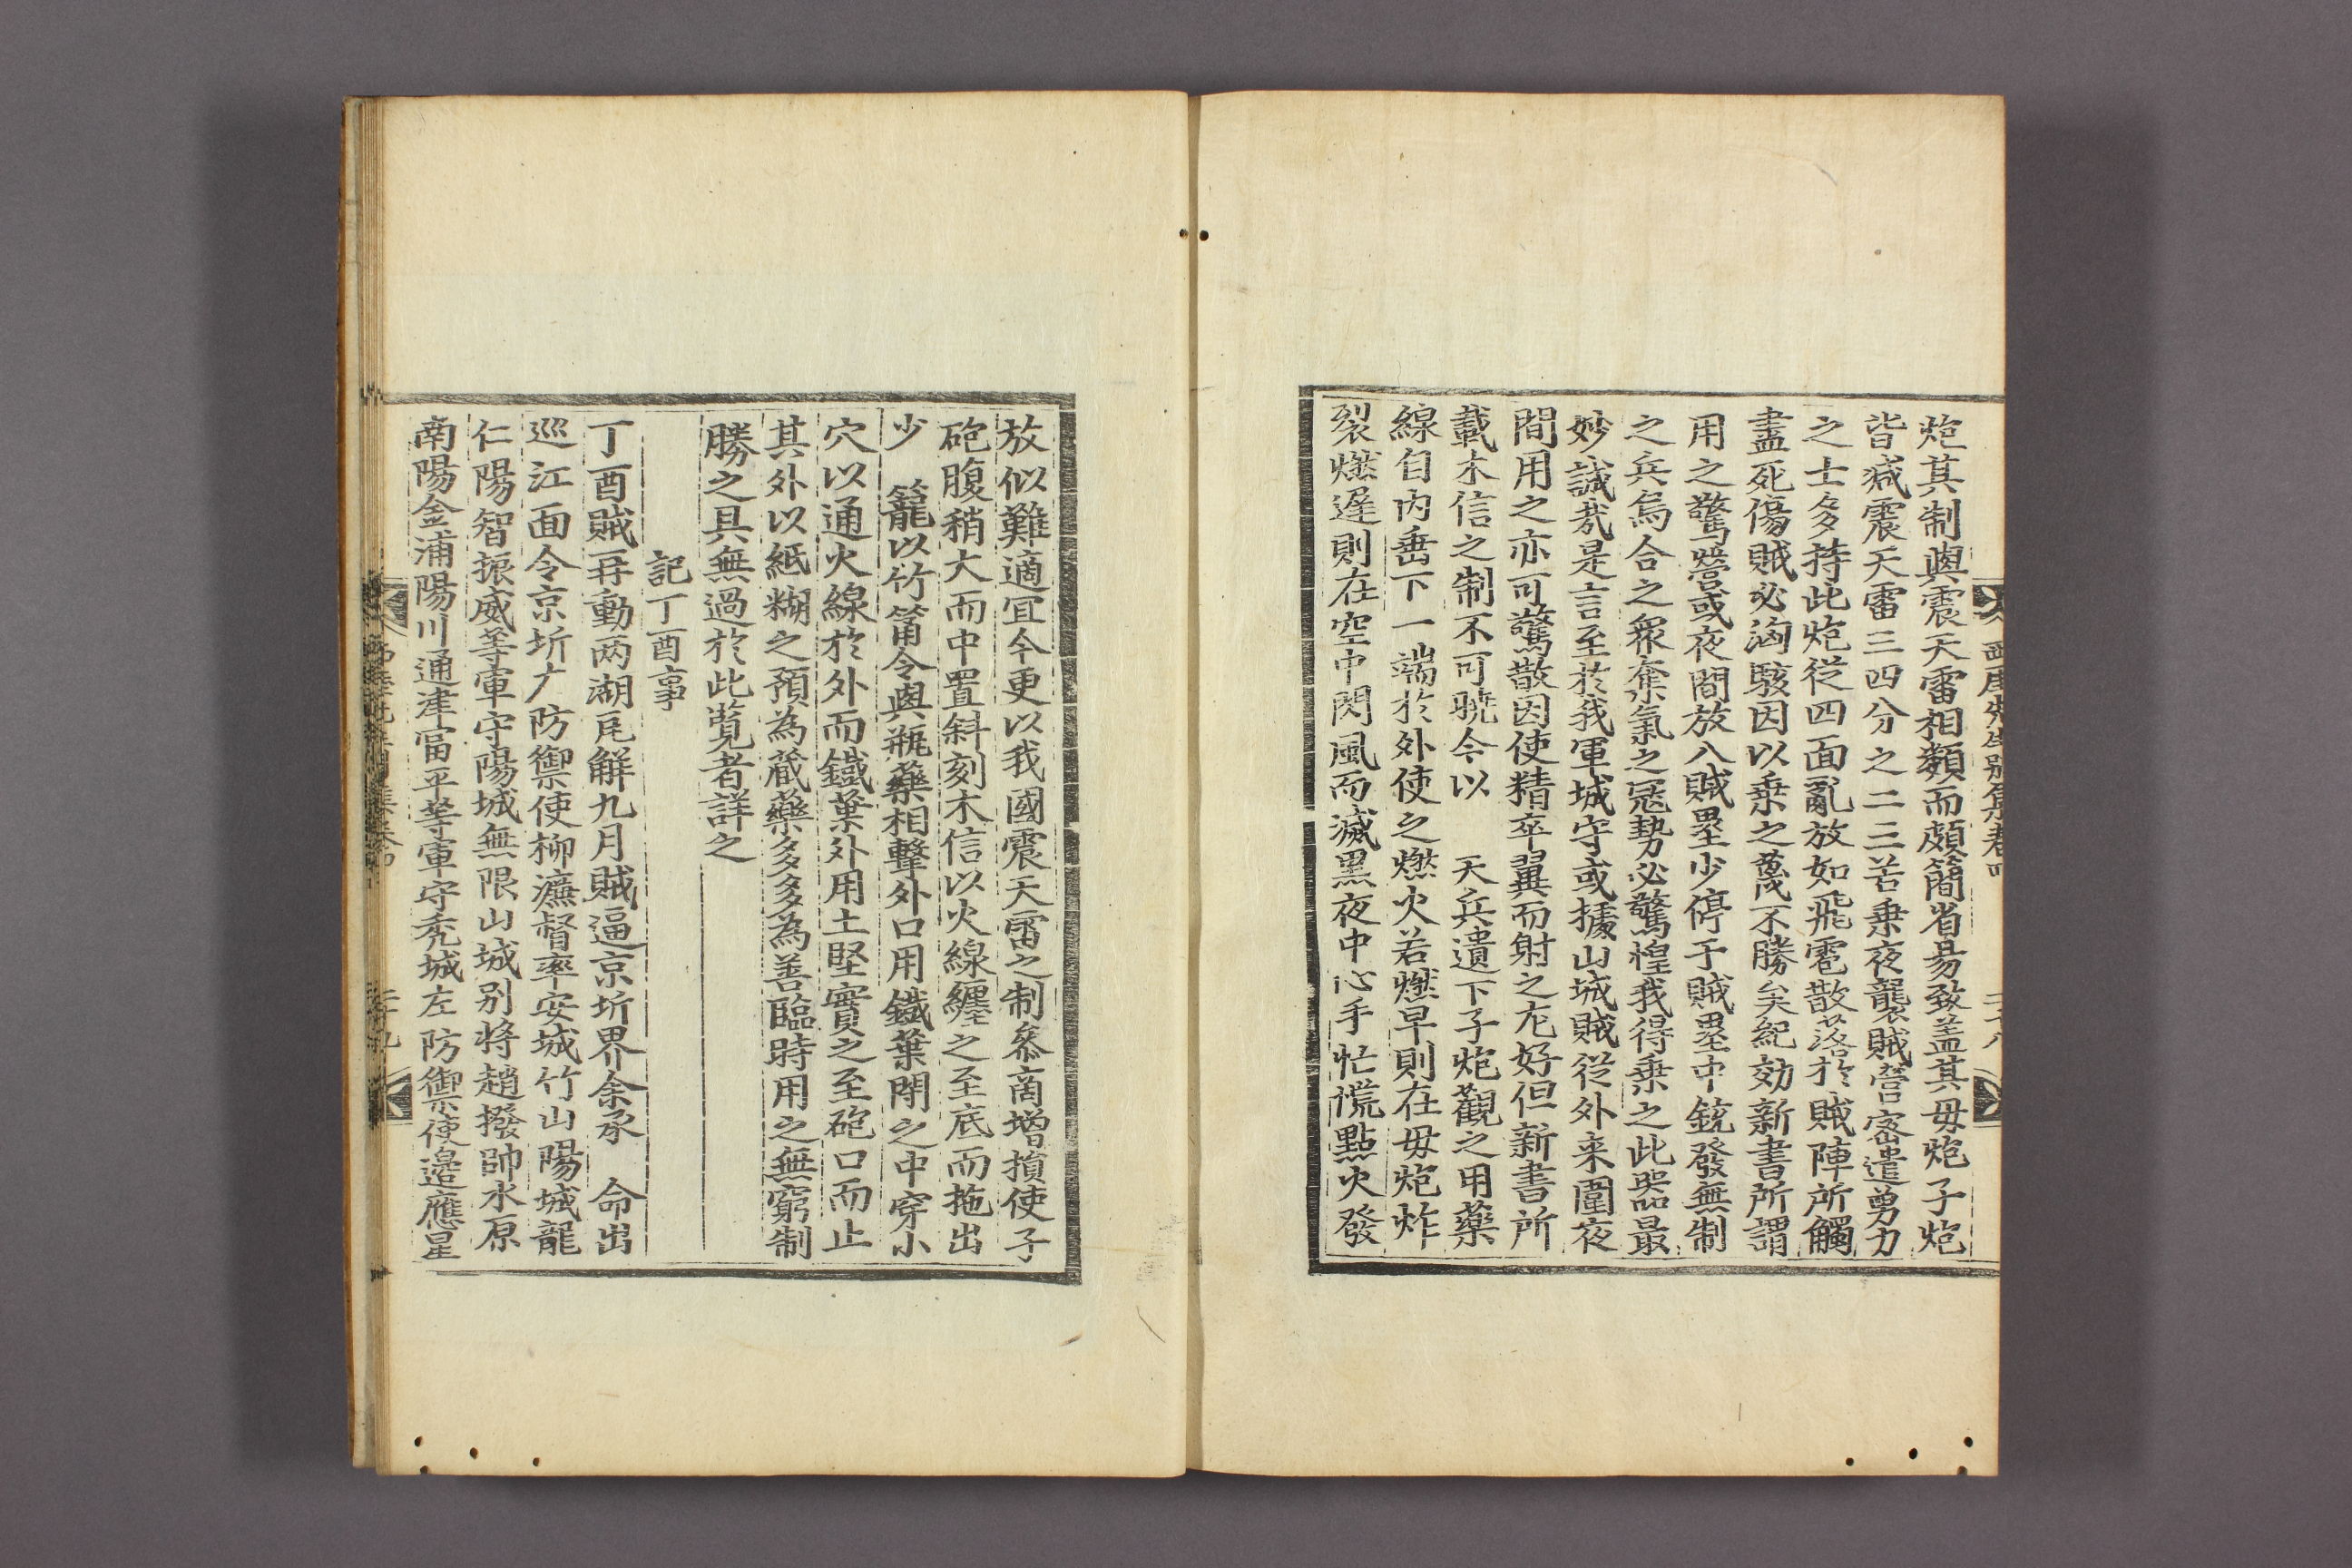 炮其制與震天雷相類而頗簡省易致盖其母炮子炮
皆减震天雷三四分之二三苦乗夜襲賊營密遣勇力
之士多持此炮從四面亂放如飛雹散落於賊陣所觸
盡死傷賊必洶駭因以乗之蔑不勝矣紀効新書所謂
用之驚營或夜間放入賊壘少停于賊壘中銃發無制
之兵烏合之衆奪氣之冦勢必驚惶我得乗之此器最
妙誠㢤是言至於我軍城守或據山城賊從外来圍夜
間用之亦可驚散因使精卒翼而射之尤好但新書所
載木信之制不可曉今以 天兵遺下子炮觀之用藥
線自内垂下一端於外使之燃火若燃早則在母炮炸
裂燃遲則在空中閃風而滅黑夜中心手忙慌點火發
西厓先生别集卷四 二十八
放似難適宜今更以我國震天雷之制叅商增損使子
砲腹稍大而中置斜刻木信以火線纒之至底而拖出
少 籠以竹筩令與瓶藥相擊外口用鐵葉閉之中穿小
穴以通火線於外而鐵葉外用土堅實之至砲口而止
其外以紙糊之預為蔵藥多多為善臨時用之無窮制
勝之具無過於此覧者詳之
記丁酉事
丁酉賊再動两湖瓦解九月賊逼京圻界余承 命出
巡江面令京圻左防禦使柳濂督率安城竹山陽城龍
仁陽智振威等軍守陽城無限山城别将趙撥帥水原
南陽金浦陽川通津富平等軍守禿城左防禦使邉應星